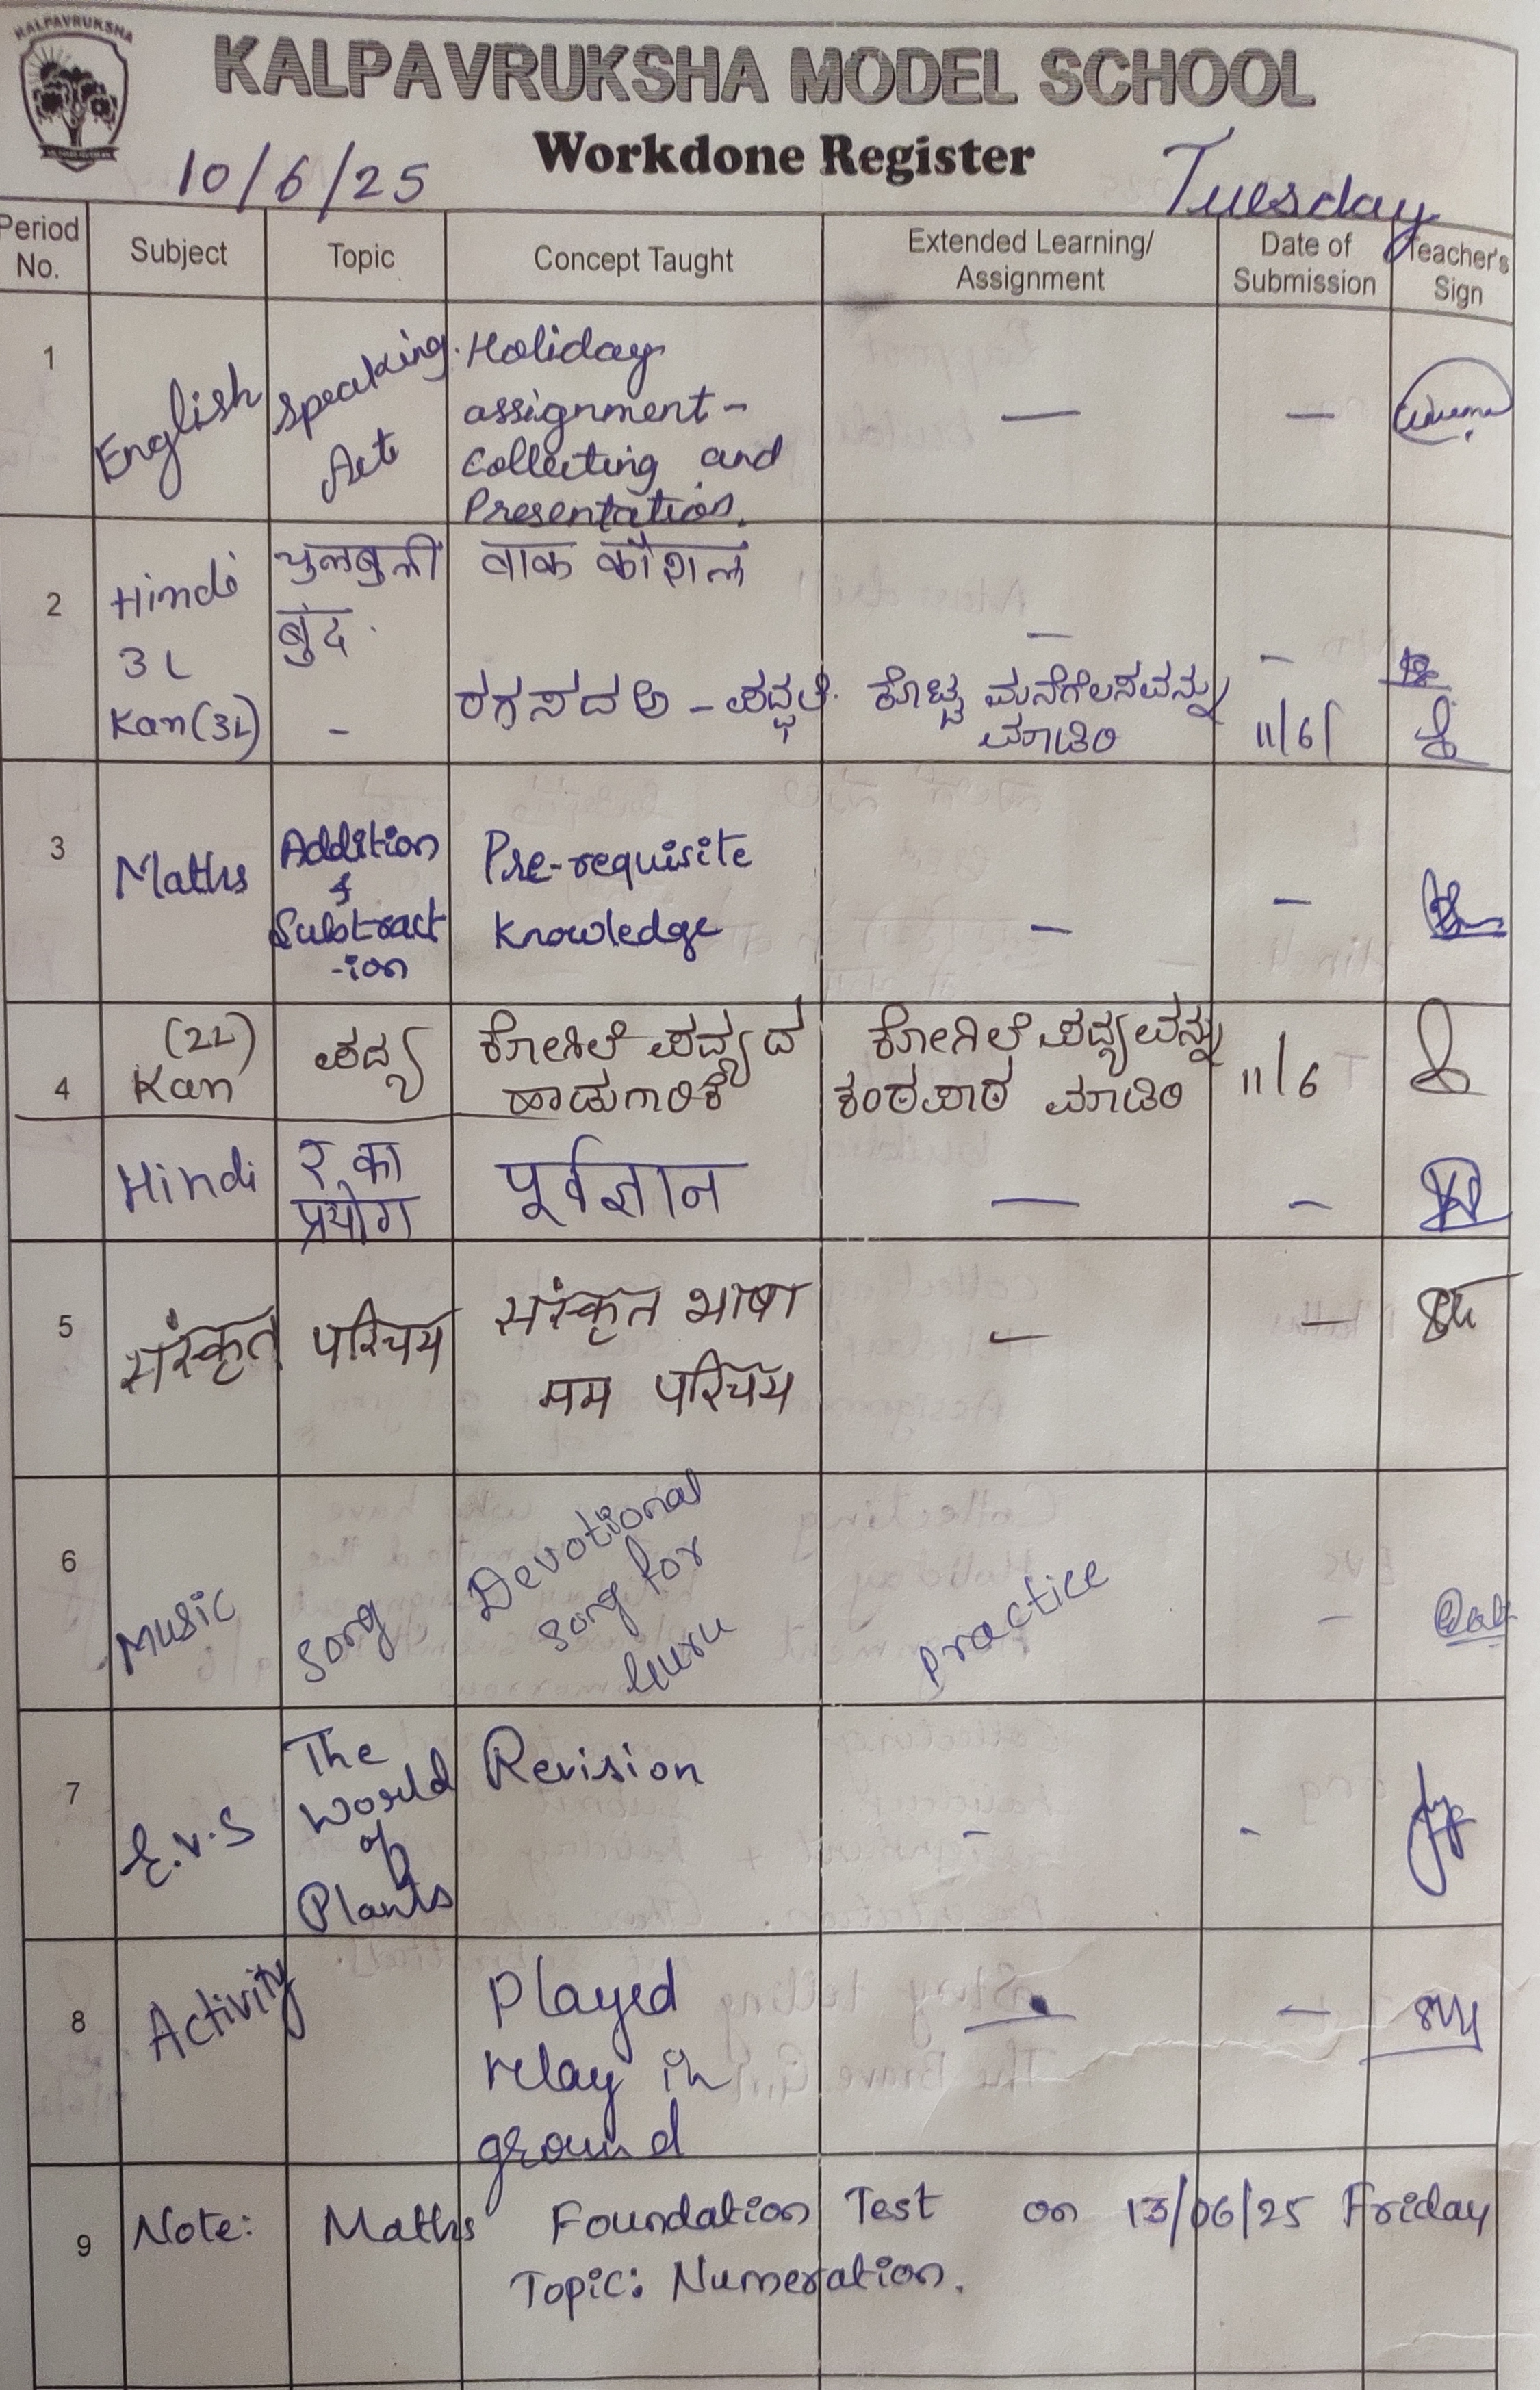 KALPAVRUKSHA
KALPAVRUKSHA MODEL SCHOOL
Workdone Register
10/6/25
Tuesday
Period No.
Subject
Topic
Concept Taught
Extended Learning/ Assignment
Date of Submission
Teacher's Sign
1
English
Speaking
Act
Holiday
assignment -
Collecting and
Presentation.
—
—
2
Hindi
3L
चुलबुली
बुंद
वाक कौशल
—
—
Kan (3L)
-
ರಗಸದಅ - ಪದ್ಧತಿ.
ಕೊಟ್ಟ ಮನೆಗೆಲಸವನ್ನು
ಮಾಡಿರಿ
11/6/
3
Maths
Addition
&
Subtract
-ion
Pre-requisite
Knowledge
—
—
4
(2L)
Kan
ಪದ್ಯ
ಕೋಗಿಲೆ ಪದ್ಯದ
ಹಾಡುಗಾರಿಕೆ
ಕೋಗಿಲೆ ಪದ್ಯವನ್ನು
ಕಂಠಪಾಠ ಮಾಡಿರಿ
11/6
Hindi
र का
प्रयोग
पूर्वज्ञान
—
—
5
संस्कृत
परिचय
संस्कृत भाषा
मम परिचय
—
—
6
Music
Song
Devotional
Song for
Guru
Practice
—
7
E.V.S
The
World
of
Plants
Revision
-
-
8
Activity
Played
relay in
ground
—
—
9
Note: Maths Foundation Test on 13/06/25 Friday
Topic: Numeration.